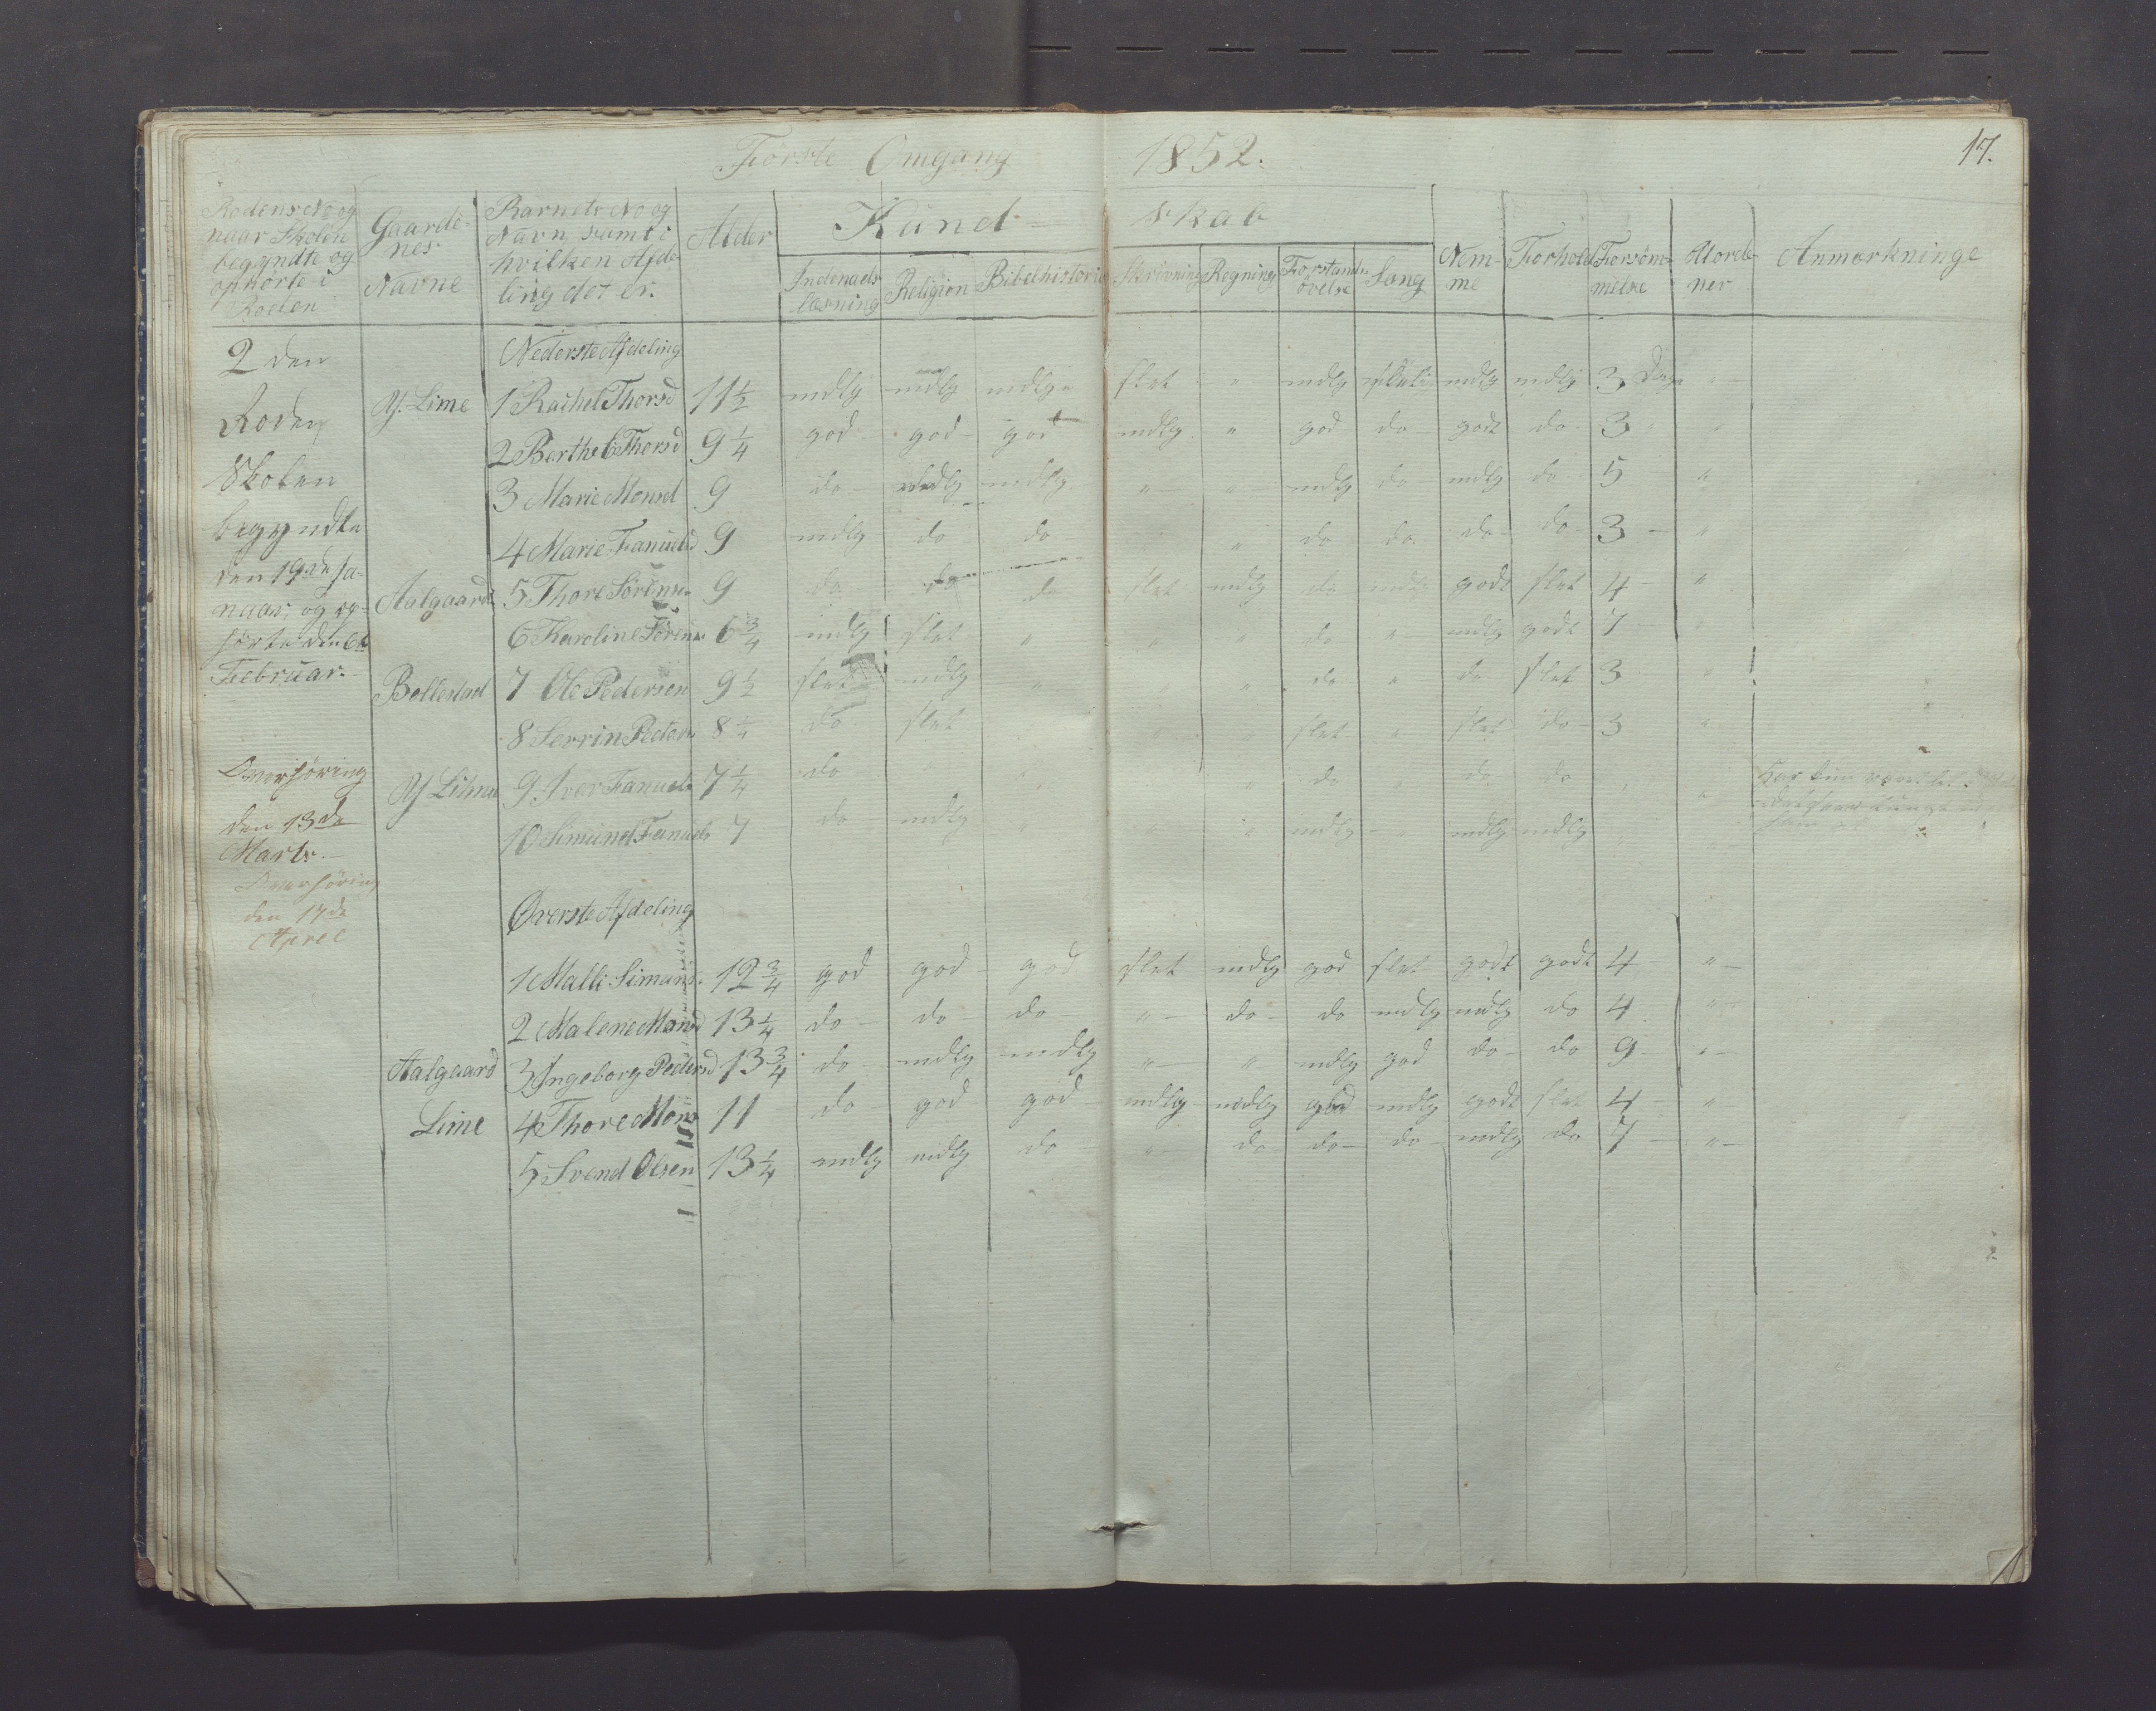 Første Omgang 1852.
17.
Rodens No og
naar Skolen
begyndte og
ophørte i
Roden
Gaarde-
nes
Navne
Barnets No og
Navn samt i
hvilken Afde-
ling det er.
Alder
Kund- skab
Indenads-
læsning
Religion
Bibelhistorie
Skrivning
Regning
Forstands-
øvelse
Sang
Nem-
me
Forhold
Forsøm-
melse
Uorde-
ner
Anmærkninge
2 den
Roden
Skolen
begyndte
den 19de Ja-
nuar, og op-
hørte den 6te
Februar.
Overhøring
den 13de
Marts.
Overhøring
den 17de
April
Nederste Afdeling
Y. Lime 1 Rachel Thorsd 11 1/2 mdlg mdlg mdlg slet " mdlg mdlg mdlg 3 Dage "
2 Berthe Thorsd 9 1/4 god god god mdlg " god do godt do 3 "
3 Marie Monsd 9 do mdlg mdlg " " mdlg do mdlg do 5 "
4 Marie Fanuelsd 9 mdlg do do " do do do do 3 "
Aalgaard 5 Thore Sørensen 9 do do do slet mdlg do mdlg godt slet 4 "
6 Karoline Sørens 6 3/4 mdlg slet " " " do " mdlg godt 7 "
Bollestad 7 Ole Pedersen 9 1/2 slet mdlg " " do " do slet 3 "
8 Serrin Peders 8 1/4 do slet " slet " slet do 3 "
Y Lime 9 Iver Fanuels 7 1/4 do " do " do do " "
Har kun været
10 Simund Fanuels 7 do mdlg " " mdlg " mdlg mdlg " "
Øverste Afdeling
1 Malli Simuns. 12 3/4 god god god slet mdlg god slet godt godt 4 "
2 Malene Monsd 13 1/4 do do do " do do mdlg mdlg do 4 "
Aalgaard 3 Ingeborg Pedersd 13 3/4 do mdlg mdlg " " mdlg god do do 9 "
Lime 4 Thore Mons 11 do god god mdlg mdlg god mdlg godt slet 4 "
5 Svend Olsen 13 1/4 mdlg mdlg do " do do do mdlg do 7 "